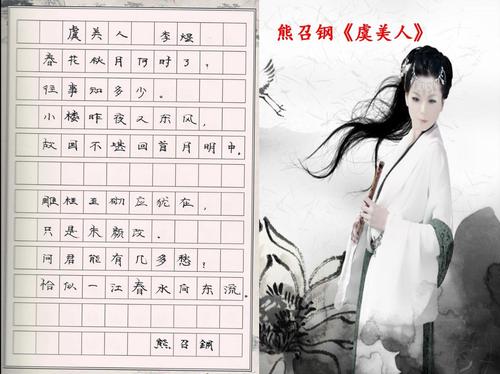 虞美人 李煜
春花秋月何时了，
往事知多少。
小楼昨夜又东风，
故国不堪回首月明中。
雕栏玉砌应犹在，
只是朱颜改。
问君能有几多愁，
恰似一江春水向东流。
熊召钢
熊召钢《虞美人》